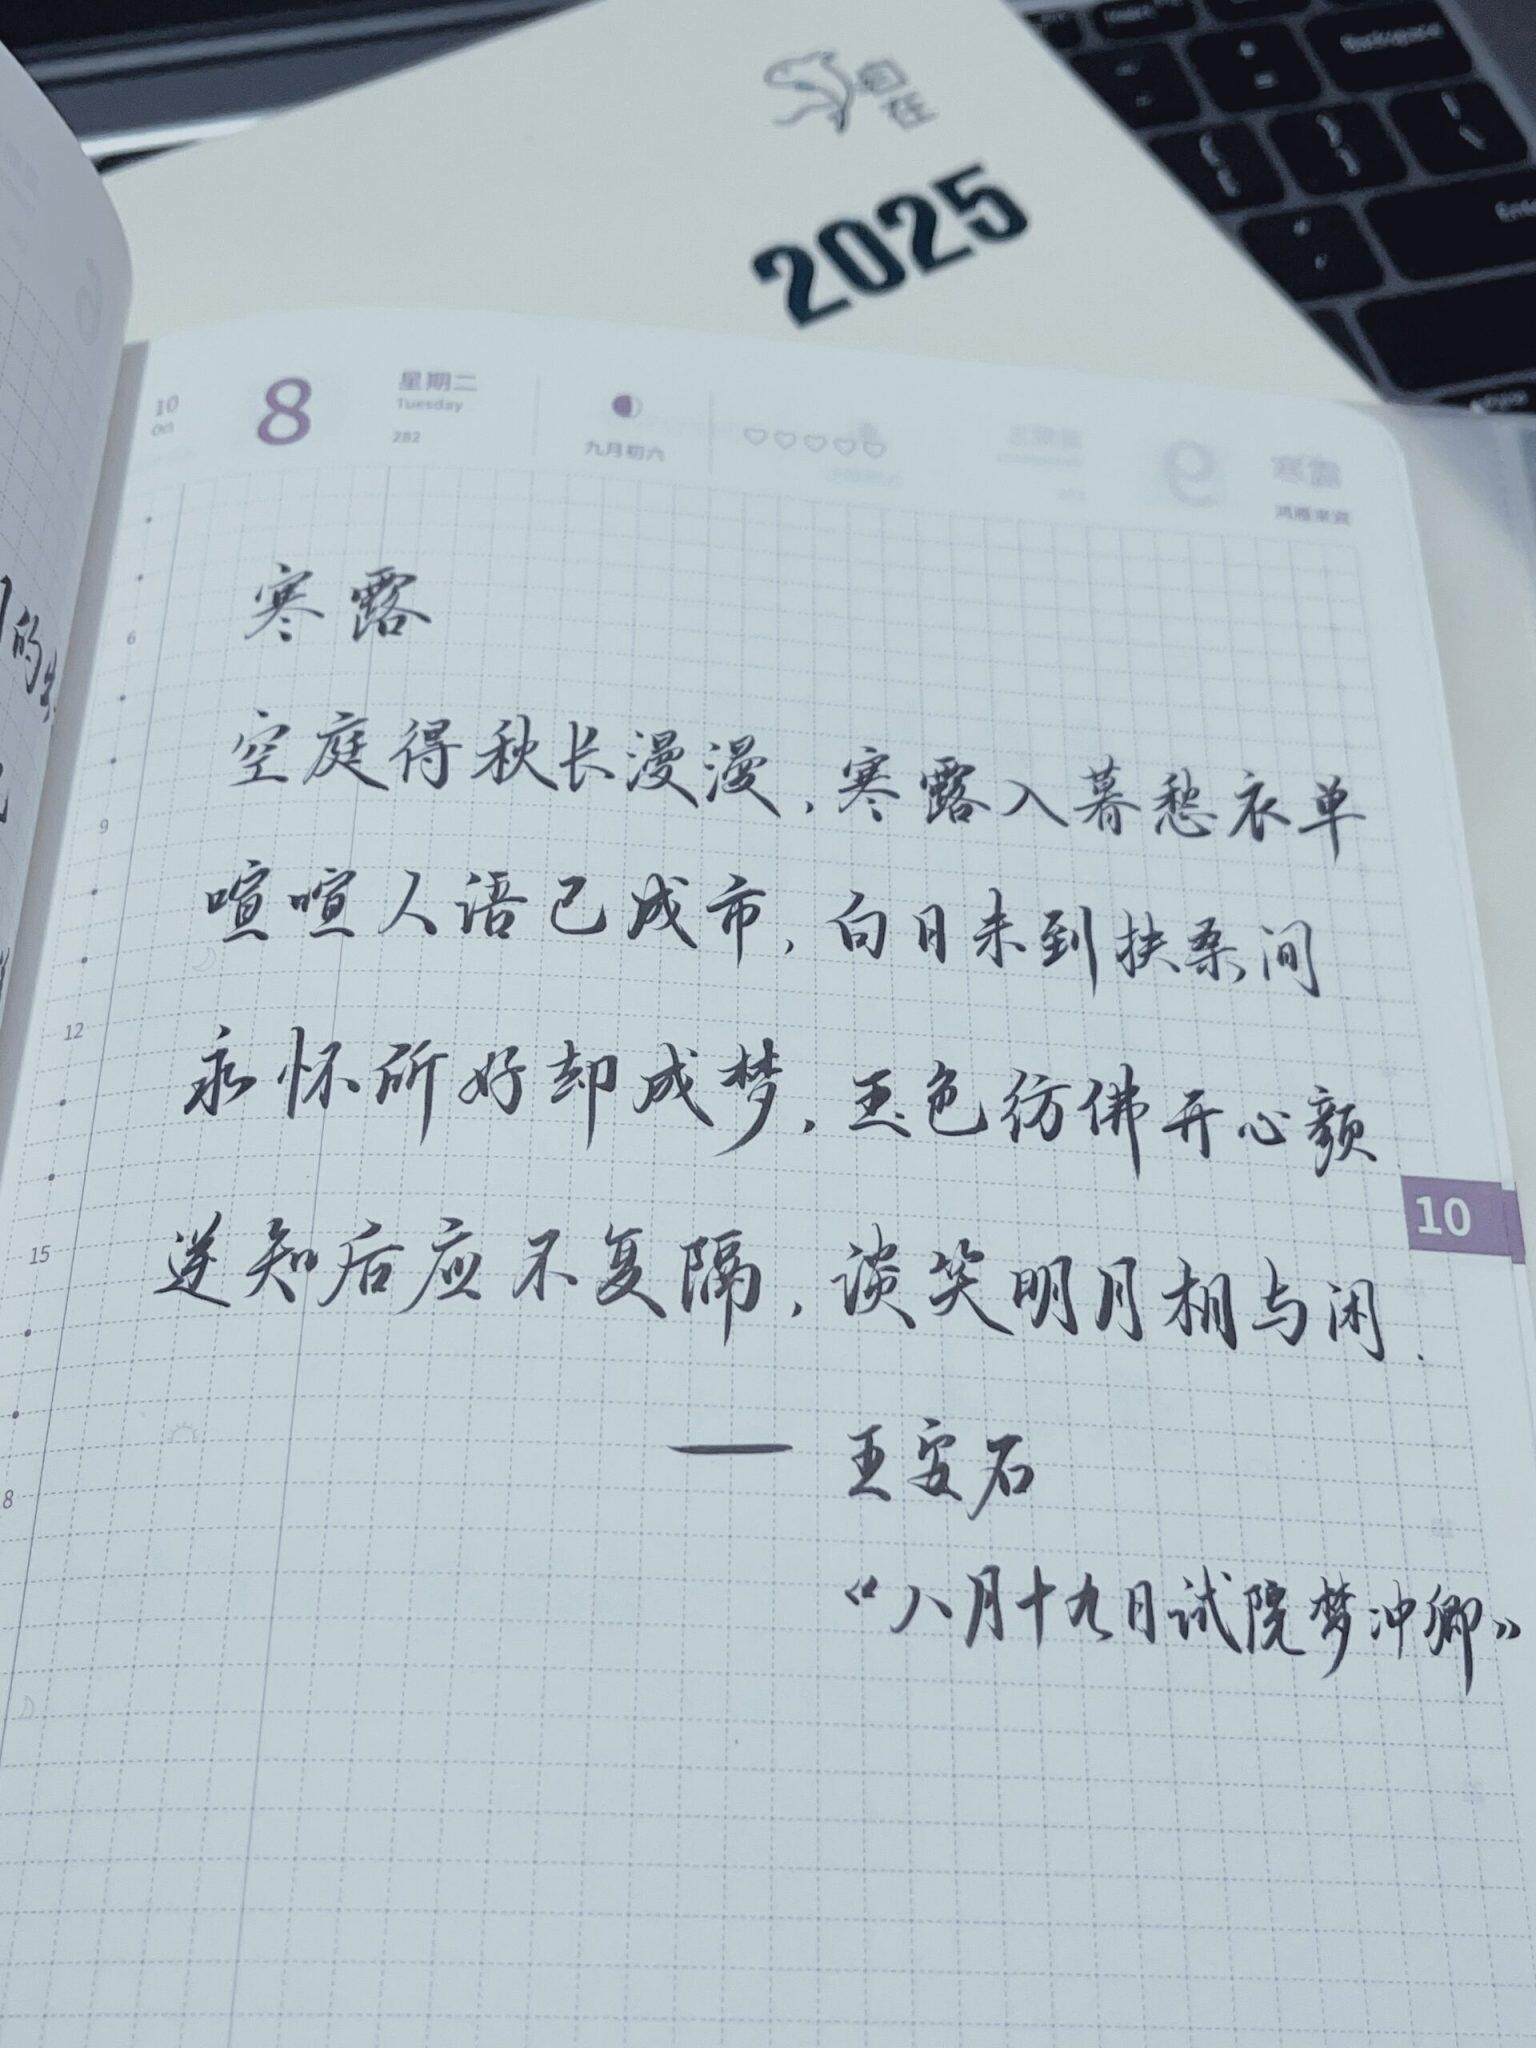 自在
2025
Backspace
Enter
10
Oct
8
星期二
Tuesday
282
九月初六
寒露
空庭得秋长漫漫，寒露入暮愁衣单
喧喧人语已成市，白日未到扶桑间
永怀所好却成梦，玉色彷佛开心颜
逆知后应不复隔，谈笑明月相与闲.
—— 王安石
《八月十九日试院梦冲卿》
6
9
12
15
8
10